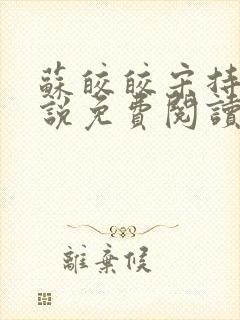 蘇皎皎宋持
說免費閱讀
離棄候